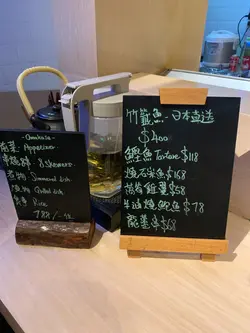 -Omakase-
前菜 Appetizer
串燒 8 Skewers
煮物 Simmered dish
Grilled dish
食事 Rice
788/-位
竹籤魚 日本直送
$400
鰹魚 Tartare $118
燒石米魚 $168
$58
牛油燒鮑魚 $78
$68